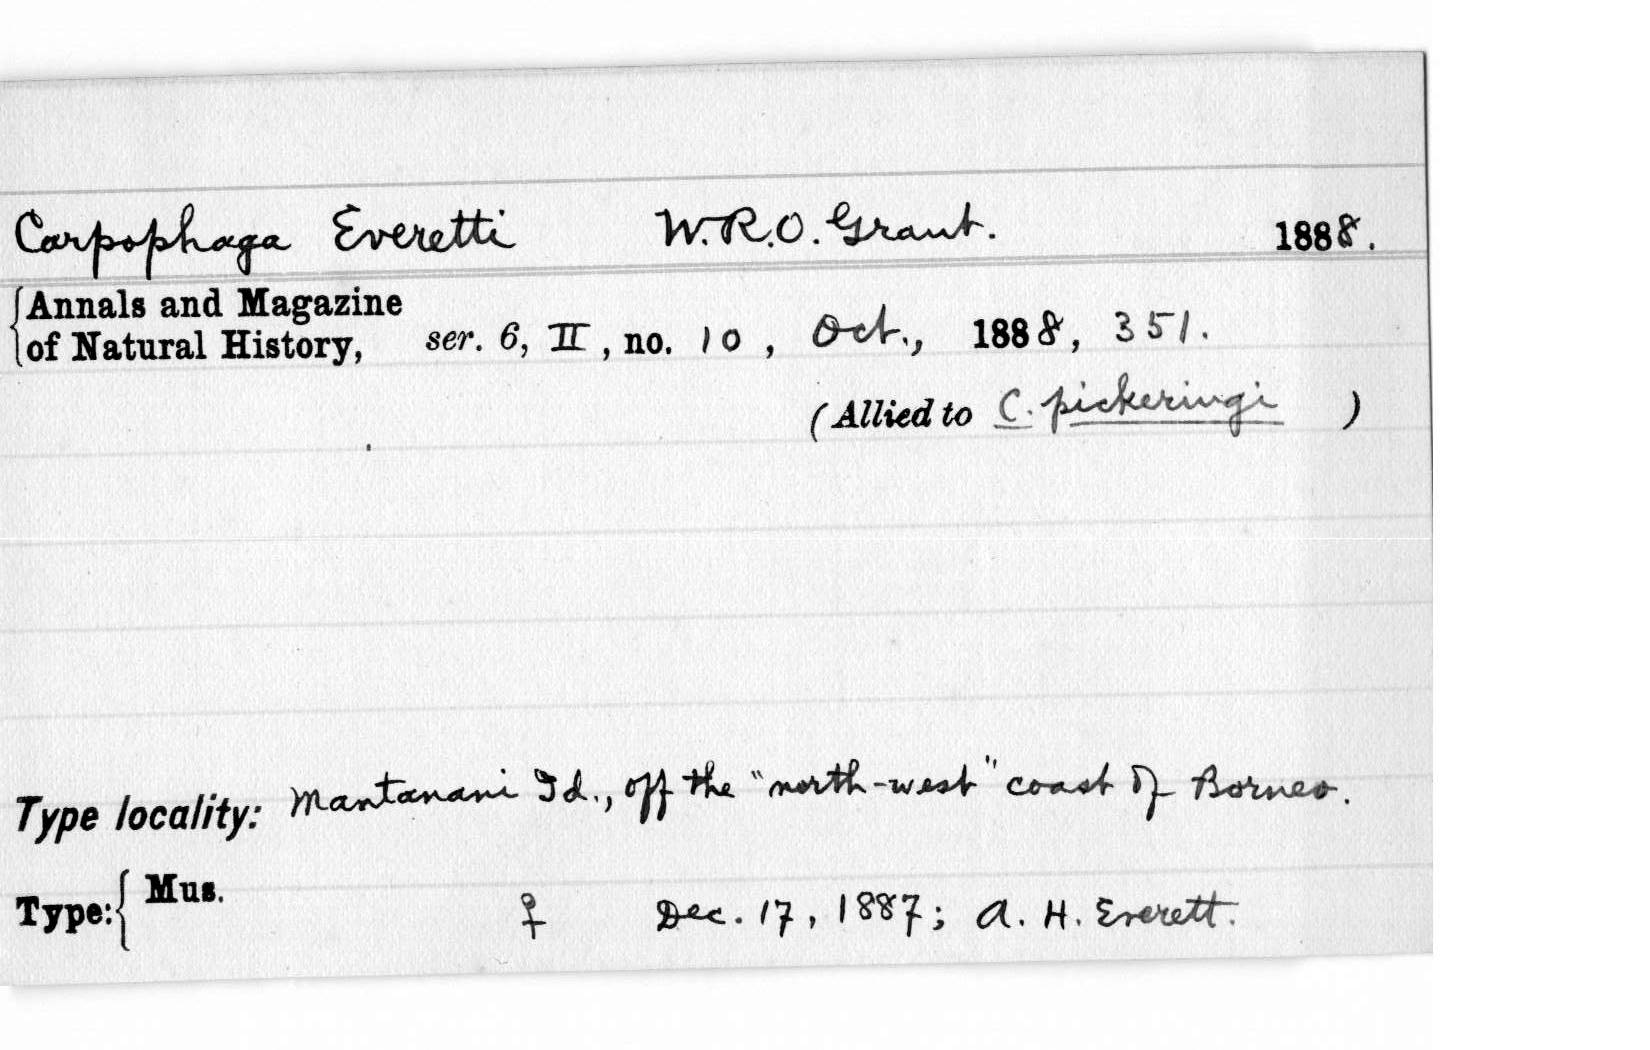 Carpophaga Everetti W.R.O. Grant. 1888.
Annals and Magazine
of Natural History, ser. 6, II, no. 10, Oct., 1888, 351.
(Allied to C. pickeringi )
Type locality: Mantanani Id., off the "north-west" coast of Borneo.
Type: Mus. ♀ Dec. 17, 1887; A. H. Everett.